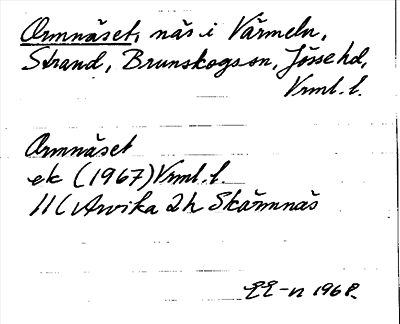 Ormnäset, näs i Värmeln,
Strand, Brunskogs sn, Jösse hd,
Vrml. l.
Ormnäset
ek (1967) Vrml. l.
11C Arvika 2h Skärmnäs
1968